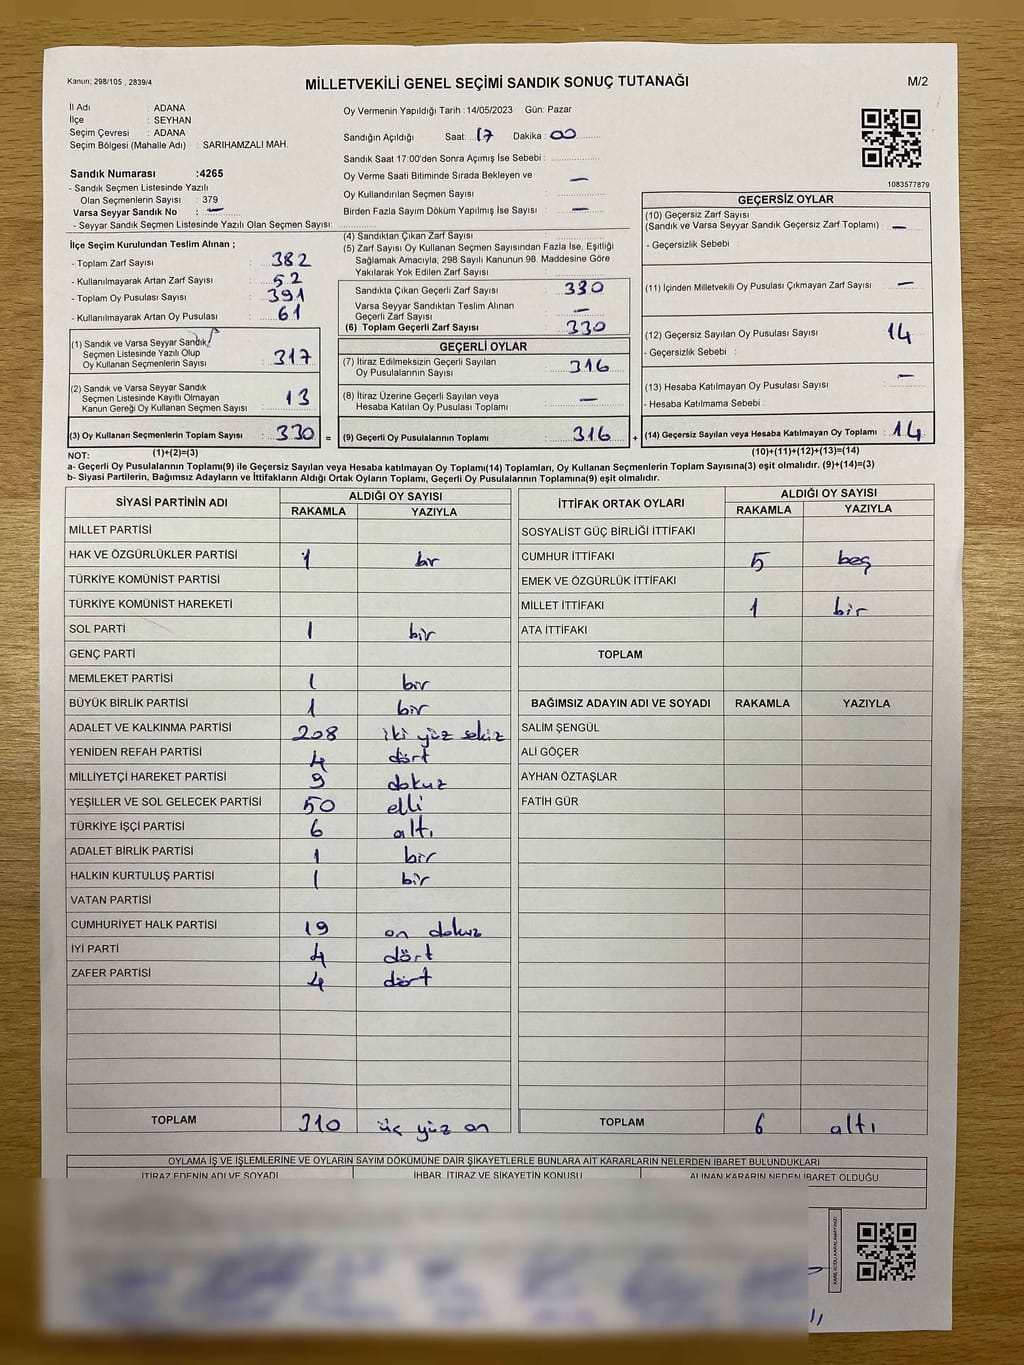 Kanun; 298/105 , 2839/4
MİLLETVEKİLİ GENEL SEÇİMİ SANDIK SONUÇ TUTANAĞI
M/2
İl Adı : ADANA
İlçe : SEYHAN
Seçim Çevresi : ADANA
Seçim Bölgesi (Mahalle Adı) : SARIHAMZALI MAH.
Oy Vermenin Yapıldığı Tarih :14/05/2023 Gün: Pazar
Sandığın Açıldığı Saat: 17 Dakika : 00
Sandık Saat 17:00'den Sonra Açımış İse Sebebi :
Oy Verme Saati Bitiminde Sırada Bekleyen ve
Oy Kullandırılan Seçmen Sayısı : —
Birden Fazla Sayım Döküm Yapılmış İse Sayısı : —
1083577879
Sandık Numarası :4265
- Sandık Seçmen Listesinde Yazılı
Olan Seçmenlerin Sayısı : 379
Varsa Seyyar Sandık No : —
- Seyyar Sandık Seçmen Listesinde Yazılı Olan Seçmen Sayısı:
İlçe Seçim Kurulundan Teslim Alınan ;
- Toplam Zarf Sayısı : 382
- Kullanılmayarak Artan Zarf Sayısı : 52
- Toplam Oy Pusulası Sayısı : 391
- Kullanılmayarak Artan Oy Pusulası : 61
(1) Sandık ve Varsa Seyyar Sandık
Seçmen Listesinde Yazılı Olup
Oy Kullanan Seçmenlerin Sayısı : 317
(2) Sandık ve Varsa Seyyar Sandık
Seçmen Listesinde Kayıtlı Olmayan
Kanun Gereği Oy Kullanan Seçmen Sayısı : 13
(3) Oy Kullanan Seçmenlerin Toplam Sayısı : 330 =
(1)+(2)=(3)
(4) Sandıktan Çıkan Zarf Sayısı :
(5) Zarf Sayısı Oy Kullanan Seçmen Sayısından Fazla İse, Eşitliği
Sağlamak Amacıyla; 298 Sayılı Kanunun 98. Maddesine Göre
Yakılarak Yok Edilen Zarf Sayısı :
Sandıkta Çıkan Geçerli Zarf Sayısı : 330
Varsa Seyyar Sandıktan Teslim Alınan
Geçerli Zarf Sayısı : —
(6) Toplam Geçerli Zarf Sayısı : 330
GEÇERLİ OYLAR
(7) İtiraz Edilmeksizin Geçerli Sayılan
Oy Pusulalarının Sayısı : 316
(8) İtiraz Üzerine Geçerli Sayılan veya
Hesaba Katılan Oy Pusulası Toplamı : —
(9) Geçerli Oy Pusulalarının Toplamı : 316 +
GEÇERSİZ OYLAR
(10) Geçersiz Zarf Sayısı
(Sandık ve Varsa Seyyar Sandık Geçersiz Zarf Toplamı) : —
- Geçersizlik Sebebi :
(11) İçinden Milletvekili Oy Pusulası Çıkmayan Zarf Sayısı : —
(12) Geçersiz Sayılan Oy Pusulası Sayısı : 14
- Geçersizlik Sebebi :
(13) Hesaba Katılmayan Oy Pusulası Sayısı : —
- Hesaba Katılmama Sebebi :
(14) Geçersiz Sayılan veya Hesaba Katılmayan Oy Pusulası Toplamı : 14
(10)+(11)+(12)+(13)=(14)
NOT:
a- Geçerli Oy Pusulalarının Toplamı(9) ile Geçersiz Sayılan veya Hesaba katılmayan Oy Toplamı(14) Toplamları, Oy Kullanan Seçmenlerin Toplam Sayısına(3) eşit olmalıdır. (9)+(14)=(3)
b- Siyasi Partilerin, Bağımsız Adayların ve İttifakların Aldığı Ortak Oyların Toplamı, Geçerli Oy Pusulalarının Toplamına(9) eşit olmalıdır.
SİYASİ PARTİNİN ADI ALDIĞI OY SAYISI
RAKAMLA YAZIYLA
MİLLET PARTİSİ
HAK VE ÖZGÜRLÜKLER PARTİSİ 1 bir
TÜRKİYE KOMÜNİST PARTİSİ
TÜRKİYE KOMÜNİST HAREKETİ
SOL PARTİ 1 bir
GENÇ PARTİ
MEMLEKET PARTİSİ 1 bir
BÜYÜK BİRLİK PARTİSİ 1 bir
ADALET VE KALKINMA PARTİSİ 208 iki yüz sekiz
YENİDEN REFAH PARTİSİ 4 dört
MİLLİYETÇİ HAREKET PARTİSİ 9 dokuz
YEŞİLLER VE SOL GELECEK PARTİSİ 50 elli
TÜRKİYE İŞÇİ PARTİSİ 6 altı
ADALET BİRLİK PARTİSİ 1 bir
HALKIN KURTULUŞ PARTİSİ 1 bir
VATAN PARTİSİ
CUMHURİYET HALK PARTİSİ 19 on dokuz
İYİ PARTİ 4 dört
ZAFER PARTİSİ 4 dört
TOPLAM 310 üç yüz on
İTTİFAK ORTAK OYLARI ALDIĞI OY SAYISI
RAKAMLA YAZIYLA
SOSYALİST GÜÇ BİRLİĞİ İTTİFAKI
CUMHUR İTTİFAKI 5 beş
EMEK VE ÖZGÜRLÜK İTTİFAKI
MİLLET İTTİFAKI 1 bir
ATA İTTİFAKI
TOPLAM
BAĞIMSIZ ADAYIN ADI VE SOYADI RAKAMLA YAZIYLA
SALİM ŞENGÜL
ALİ GÖÇER
AYHAN ÖZTAŞLAR
FATİH GÜR
TOPLAM 6 altı
OYLAMA İŞ VE İŞLEMLERİNE VE OYLARIN SAYIM DÖKÜMÜNE DAİR ŞİKAYETLERLE BUNLARA AİT KARARLARIN NELERDEN İBARET BULUNDUKLARI
İTİRAZ EDENİN ADI VE SOYADI İHBAR, İTİRAZ VE ŞİKAYETİN KONUSU ALINAN KARARIN NEDEN İBARET OLDUĞU